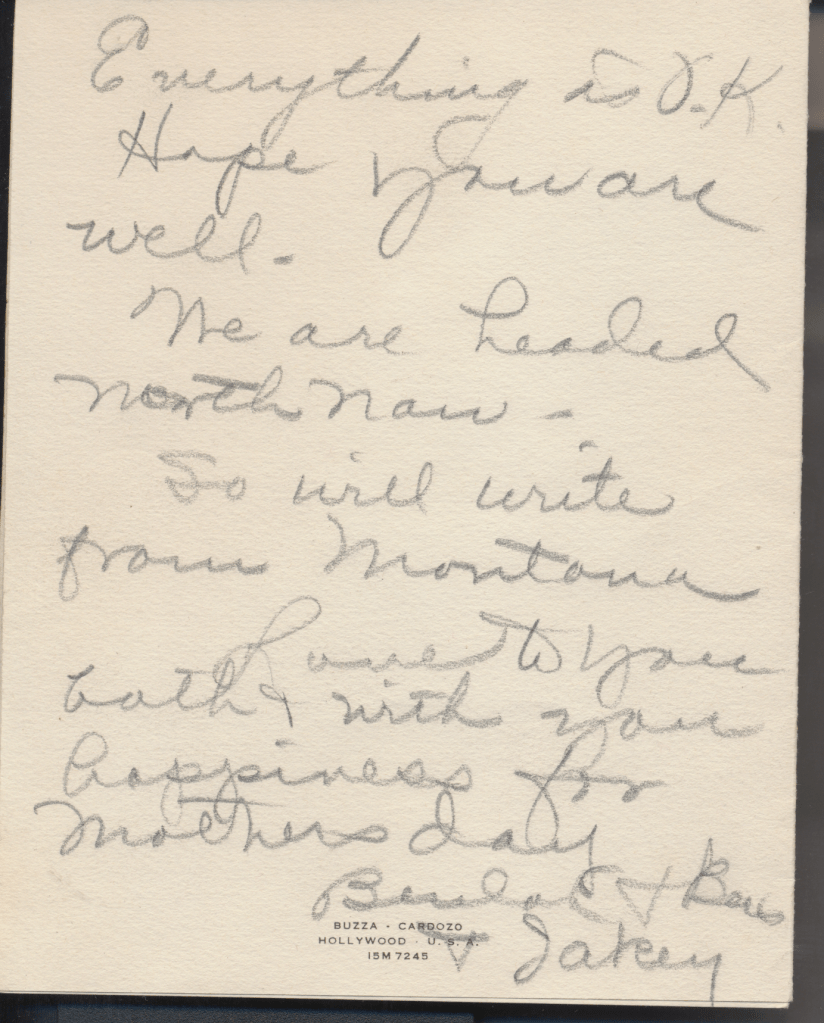 Everything is O.K.
Hope you are
well.
We are headed
north now -
So will write
from Montana
Love to you
both & with you
happiness for
Mothers day
Beulah &
BUZZA · CARDOZO
HOLLYWOOD · U. S. A.
15M7245
& Jakey